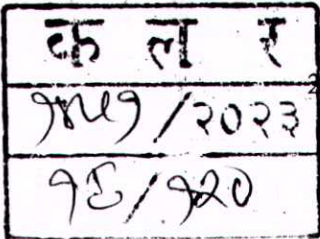 क ल र
१५५१/२०२३
१८/१२०